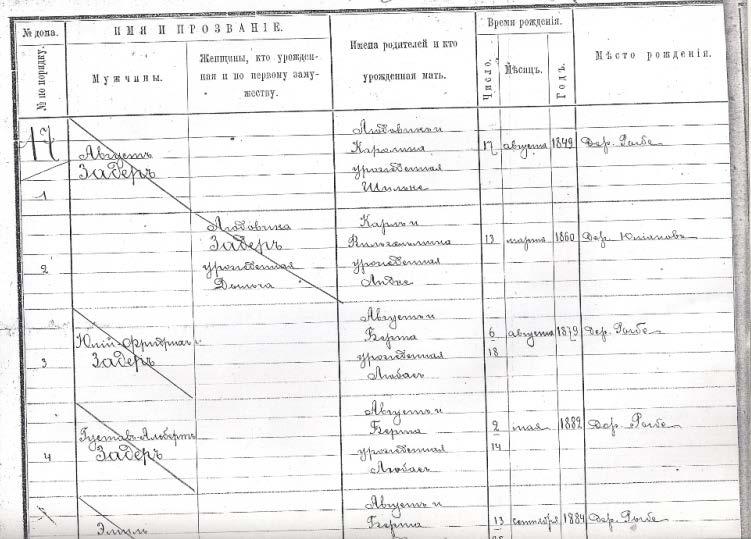 № дома.
№ по порядку.
ИМЯ И ПРОЗВАНІЕ.
Мужчины.
Женщины, кто урожден-
ная и по первому заму-
жеству.
Имена родителей и кто
урожденная мать.
Время рожденія.
Число.
Мѣсяцъ.
Годъ.
Мѣсто рожденія.
17
1
Августъ
Задеръ
Людовикъ и
Каролина
урожденная
17 августа 1849 Дер. Рыбе
2
Людовика
Задеръ
урожденная
Карлъ и
Вильгельмина
урожденная
13 марта 1860 Дер.
3
Юлій-Фридрихъ
Задеръ
Августъ и
Берта
урожденная
Любаев
6
18
августа 1879 Дер. Рыбе
4
Густавъ-Альбертъ
Задеръ
Августъ и
Берта
урожденная
Любаев
2
14
мая 1882 Дер. Рыбе
Эмиль
Августъ и
Берта
13 сентября 1884 Дер. Рыбе